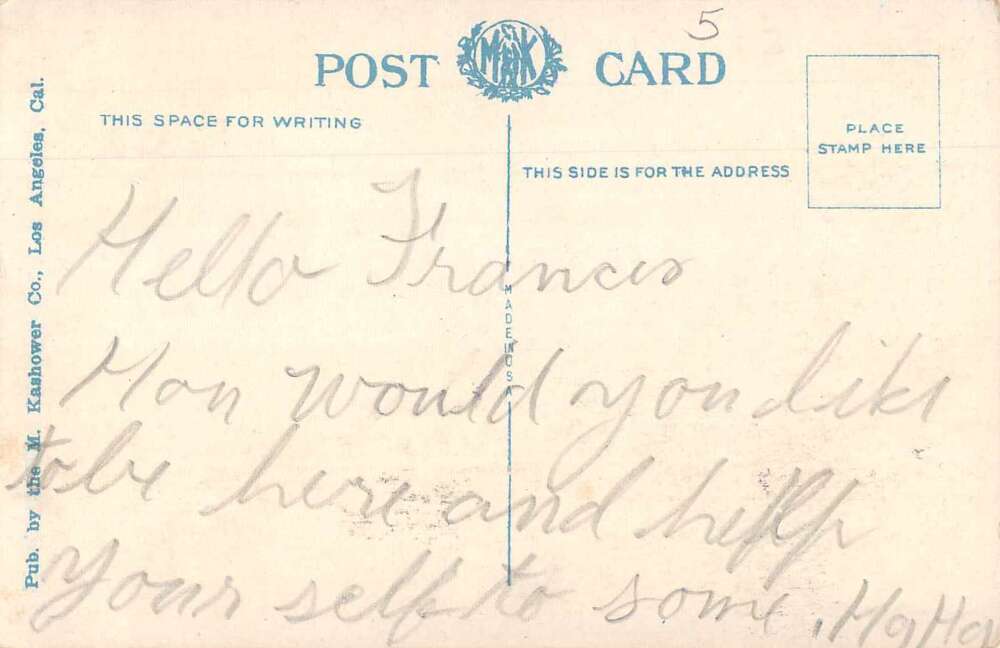 5
POST MHK CARD
THIS SPACE FOR WRITING
THIS SIDE IS FOR THE ADDRESS
PLACE
STAMP HERE
Pub. by the M. Kashower Co., Los Angeles, Cal.
MADE IN U S
Hello Frances
How would you like
to be here and help
your self to some, Ha Ha